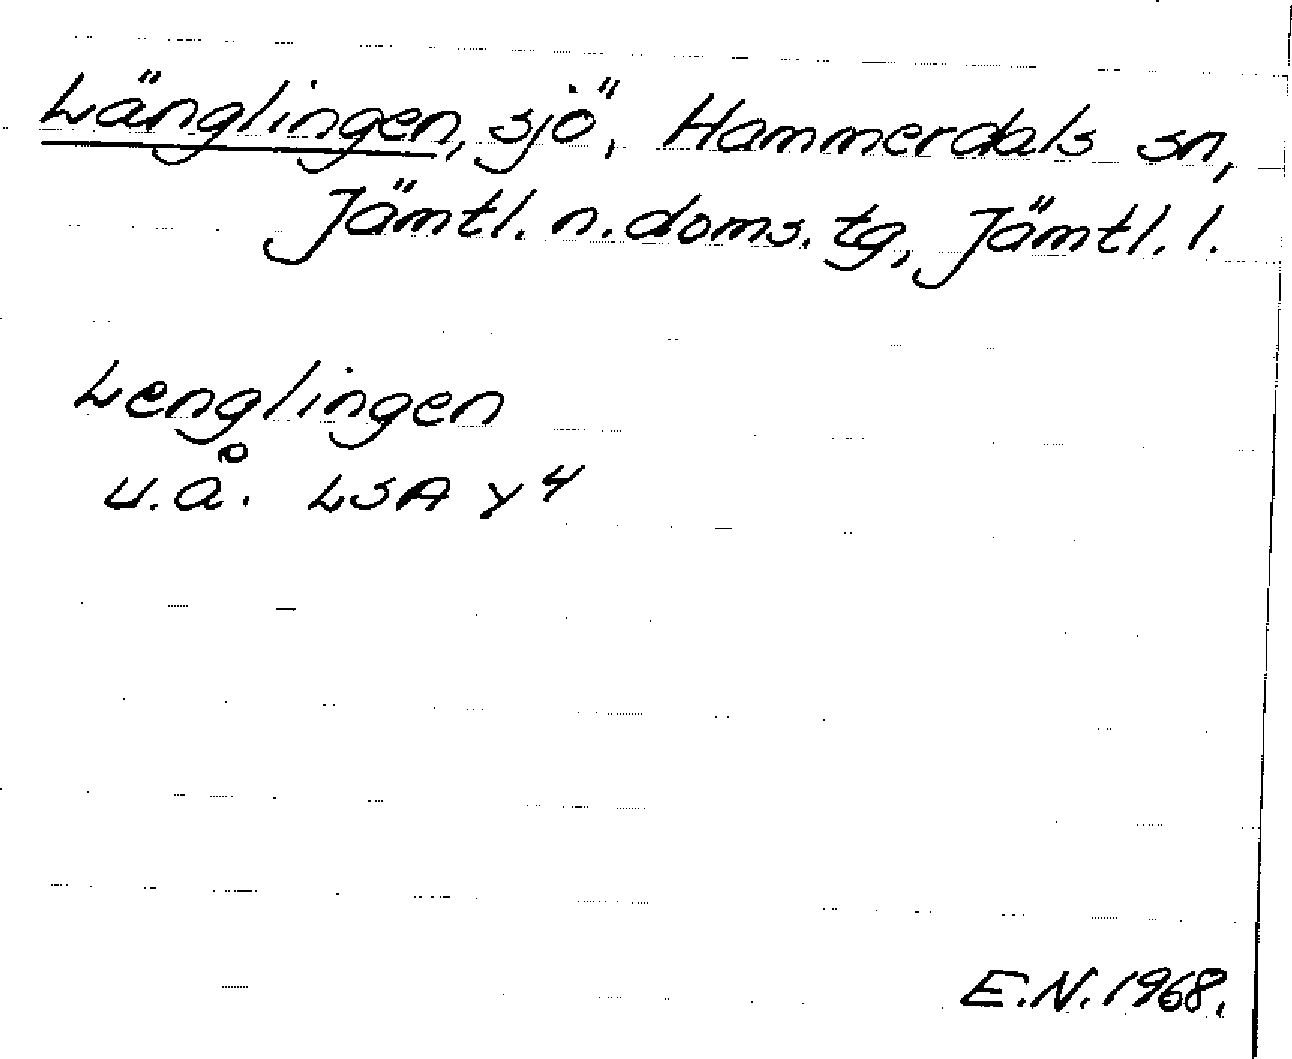 Länglingen, sjö, Hammerdals sn,
Jämtl. n. doms. tg, Jämtl. l.
Lenglingen
u.å. LSA Y4
E.N. 1968.